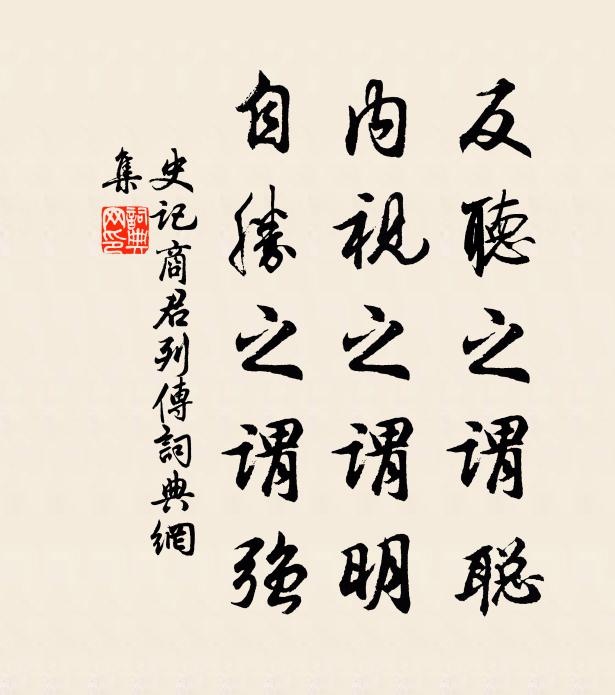 反聽之谓聪
内視之谓明
自勝之谓强
史记商君列傳詞典網
集
詞典
网印